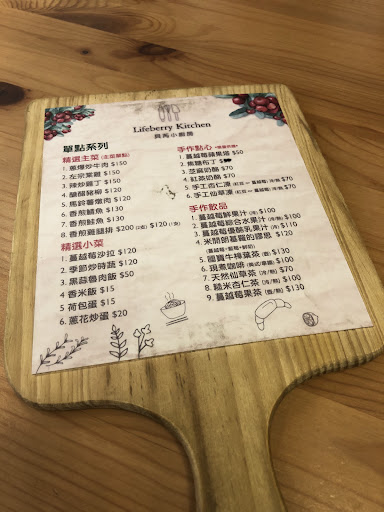 Lifeberry Kitchen
單點系列
精選主菜 (主菜單點)
1. 蔥爆炒牛肉 $150
2. 左宗棠雞 $150
3. 辣炒雞丁 $150
4. 糖醋豬柳 $120
5. 馬鈴薯燉肉 $120
6. 香煎鯖魚 $130
7. 香煎鮭魚 $130
8. 香煎雞腿排 $200
精選小菜
1. 蔓越莓沙拉 $120
2. 季節炒時蔬 $120
3. 黑蒜魯肉飯 $50
4. 香米飯 $15
5. 荷包蛋 $15
6. 蔥花炒蛋 $20
手作點心
1. 蔓越莓蘋果塔 $50
2. 焦糖布丁
3. 芝麻奶酪 $70
4. 紅茶奶酪 $70
5. 手工杏仁凍 $70
6. 手工仙草凍 $70
手作飲品
1. 蔓越莓鮮果汁 (冷) $100
2. 蔓越莓綜合水果汁 (冷) $110
3. 蔓越莓優酪乳果汁 (冷) $110
4. 米開朗基羅的膠思 $120
(蔓越莓/藍莓+鮮奶)
5. 國寶牛樟菇茶 (壺) $130
6. 現煮咖啡 $100
7. 天然仙草茶 (冷/熱) $70
8. 糙米杏仁茶 (冷/熱) $100
9. 蔓越莓果茶 (壺/熱) $130